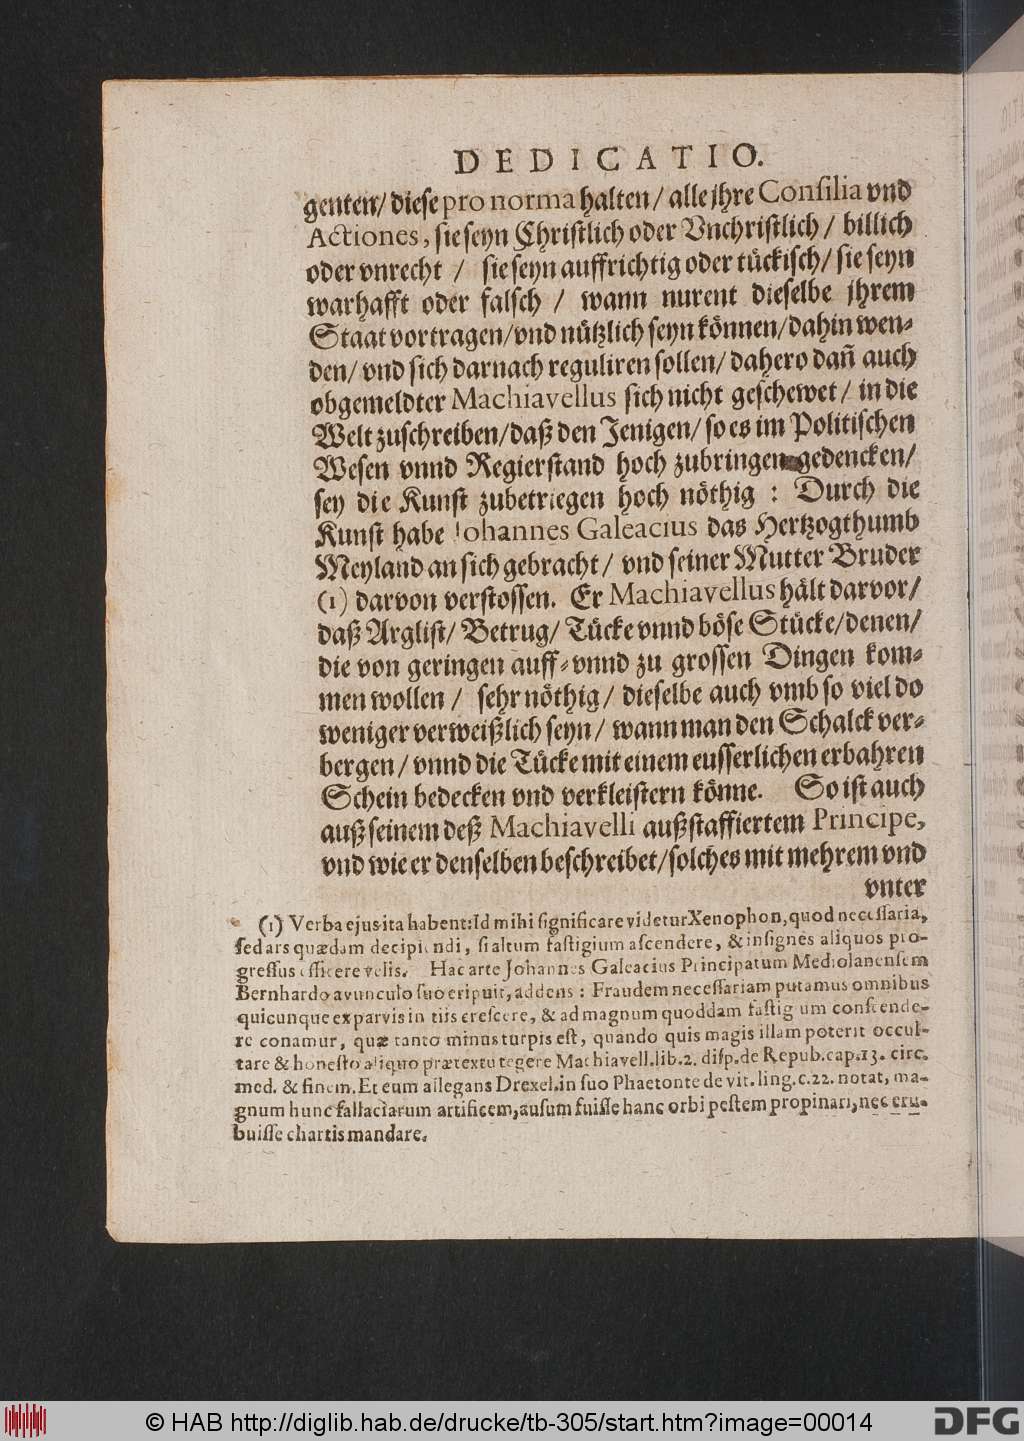 DEDICATIO.
genten/ diese pro norma halten/ alle jhre Consilia vnd
Actiones, sie seyn Christlich oder Vnchristlich/ billich
oder vnrecht / sie seyn auffrichtig oder tückisch/ sie seyn
warhafft oder falsch / wann nurent dieselbe jhrem
Staat vortragen/ vnd nützlich seyn können/ dahin wen-
den/ vnd sich darnach reguliren sollen/ dahero dañ auch
obgemeldter Machiavellus sich nicht geschewet/ in die
Welt zuschreiben/ daß den Jenigen/ so es im Politischen
Wesen vnnd Regierstand hoch zubringen gedencken/
sey die Kunst zubetriegen hoch nöthig : Durch die
Kunst habe Johannes Galeacius das Hertzogthumb
Meyland an sich gebracht/ vnd seiner Mutter Bruder
(1) darvon verstossen. Er Machiavellus hält darvor/
daß Arglist/ Betrug/ Tücke vnnd böse Stücke/ denen/
die von geringen auff- vnnd zu grossen Dingen kom-
men wollen / sehr nöthig/ dieselbe auch vmb so viel do
weniger verweißlich seyn/ wann man den Schalck ver-
bergen/ vnnd die Tücke mit einem eusserlichen erbahren
Schein bedecken vnd verkleistern könne. So ist auch
auß seinem deß Machiavelli außstaffiertem Principe,
vnd wie er denselben beschreibet/ solches mit mehrem vnd
vnter
(1) Verba ejus ita habent: Id mihi significare videtur Xenophon, quod necessaria,
sed ars quædam decipiendi, si altum fastigium ascendere, & insignes aliquos pro-
gressus efficere velis. Hac arte Johannes Galeacius Principatum Mediolanensem
Bernhardo avunculo suo eripuit, addens : Fraudem necessariam putamus omnibus
quicunque ex parvis in tiis crescere, & ad magnum quoddam fastigium conscende-
re conamur, quæ tanto minus turpis est, quando quis magis illam poterit occul-
tare & honesto aliquo prætextu tegere Machiavell. lib. 2. disp. de Repub. cap. 13. circ.
med. & finem. Et eum allegans Drexel. in suo Phaetonte de vit. ling. c. 22. notat, ma-
gnum hunc fallaciarum artificem, ausum fuisse hanc orbi pestem propinari, nec eru-
buisse chartis mandare.
© HAB http://diglib.hab.de/drucke/tb-305/start.htm?image=00014
DFG